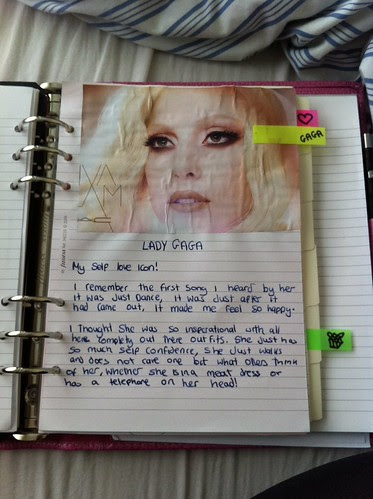 GAGA
LADY GAGA
My Self love Icon!
I remember the first song I heard by her
it was Just Dance, it was Just after it
had came out, it made me feel so happy.
I thought She was so inspirational with all
here completly out there outfits. She Just has
so much self confidence, She Just walks
and does not care one bit what others think
of her, whether she is in a meat dress or
has a telephone on her head!